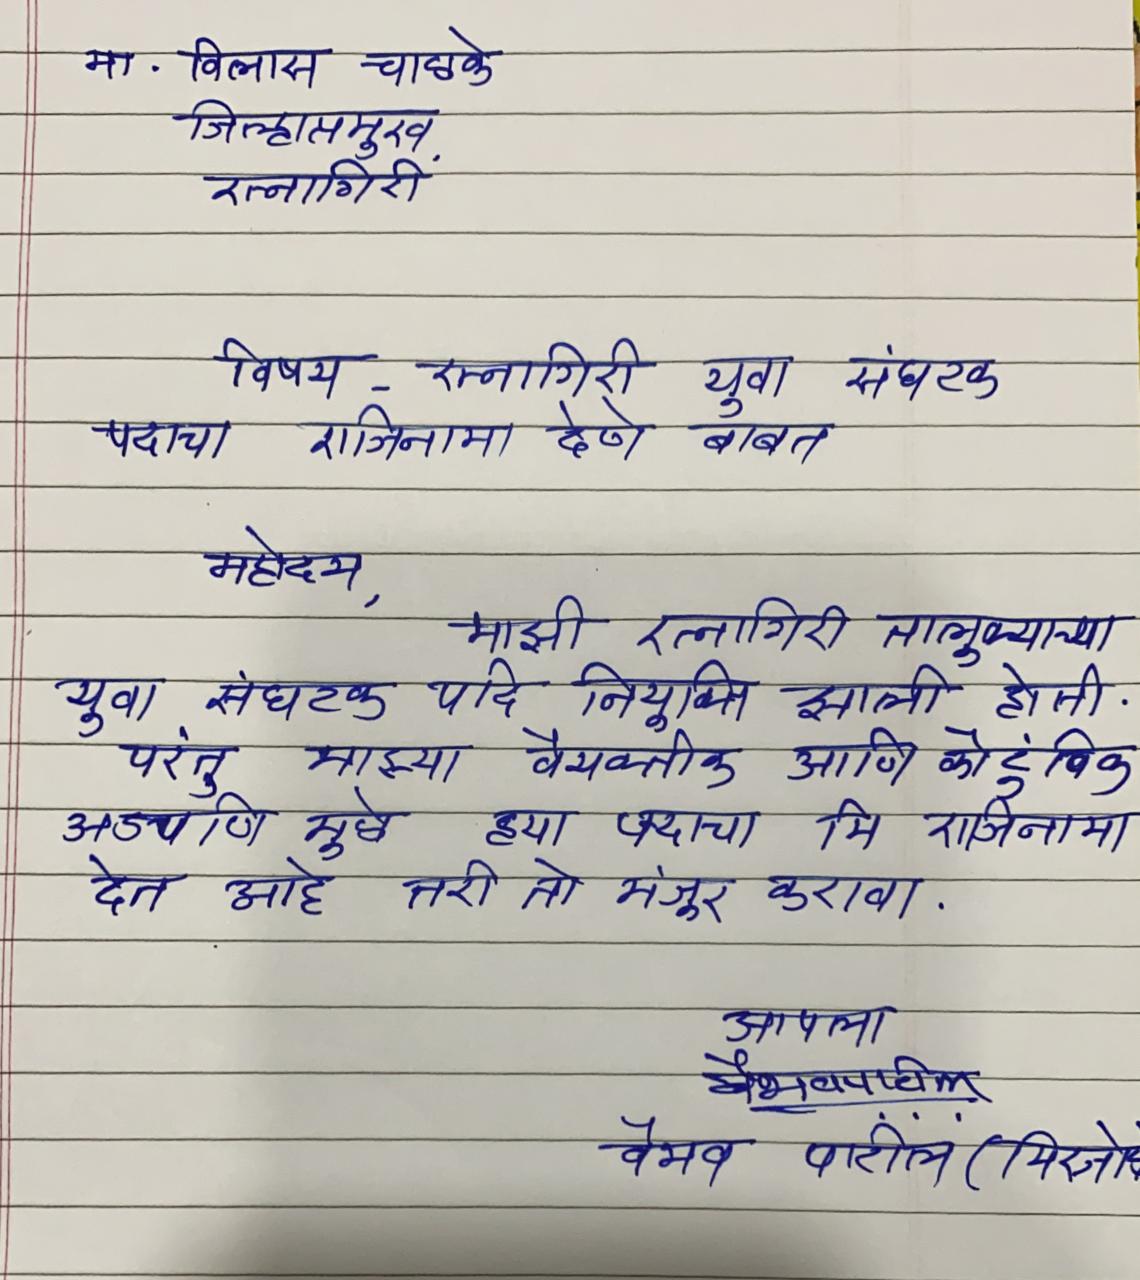 मा. विलास चाळके
जिल्हाप्रमुख,
रत्नागिरी
विषय - रत्नागिरी युवा संघटक
पदाचा राजिनामा देणे बाबत
महोदय,
माझी रत्नागिरी तालुक्याच्या
युवा संघटक पदि नियुक्ति झाली होती.
परंतु माझ्या वैयक्तीक आणि कौटुंबिक
अडचणि मुळे ह्या पदाचा मि राजिनामा
देत आहे तरी तो मंजूर करावा.
आपला
वैभवपाटील
वैभव पाटील (